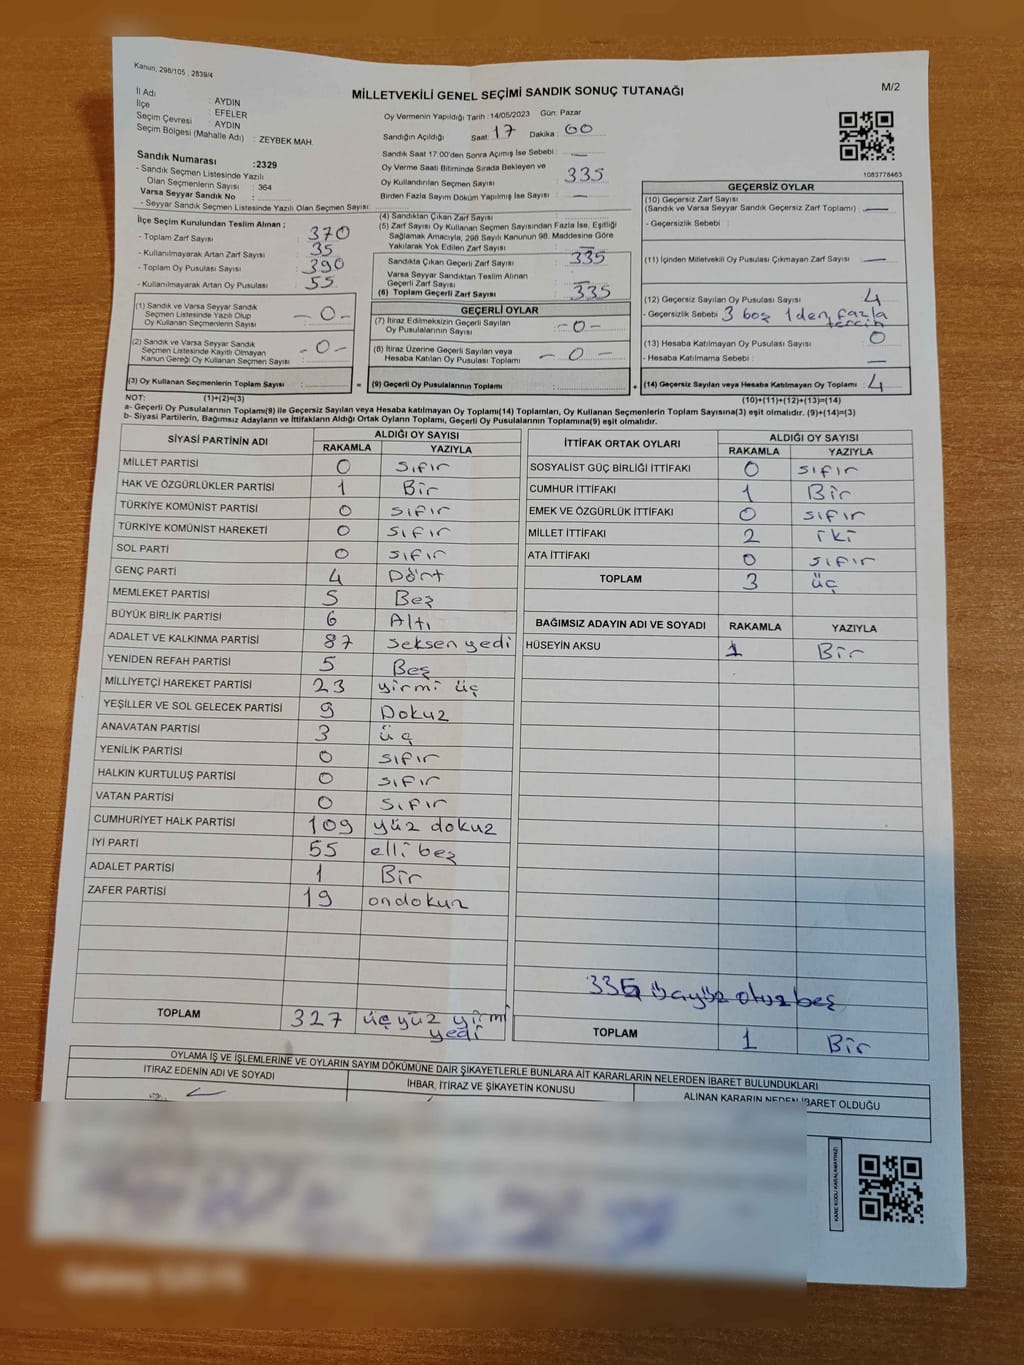 Kanun; 298/105 , 2839/4
M/2
MİLLETVEKİLİ GENEL SEÇİMİ SANDIK SONUÇ TUTANAĞI
İl Adı : AYDIN
İlçe : EFELER
Seçim Çevresi : AYDIN
Seçim Bölgesi (Mahalle Adı) : ZEYBEK MAH.
Sandık Numarası :2329
- Sandık Seçmen Listesinde Yazılı
Olan Seçmenlerin Sayısı : 364
Varsa Seyyar Sandık No :
- Seyyar Sandık Seçmen Listesinde Yazılı Olan Seçmen Sayısı:
Oy Vermenin Yapıldığı Tarih :14/05/2023 Gün: Pazar
Sandığın Açıldığı Saat: 17 Dakika : 00
Sandık Saat 17:00'den Sonra Açılmış İse Sebebi : —
Oy Verme Saati Bitiminde Sırada Bekleyen ve
Oy Kullandırılan Seçmen Sayısı : 335
Birden Fazla Sayım Döküm Yapılmış İse Sayısı : —
1083778463
İlçe Seçim Kurulundan Teslim Alınan ;
- Toplam Zarf Sayısı : 370
- Kullanılmayarak Artan Zarf Sayısı : 35
- Toplam Oy Pusulası Sayısı : 390
- Kullanılmayarak Artan Oy Pusulası : 55
(1) Sandık ve Varsa Seyyar Sandık
Seçmen Listesinde Yazılı Olup
Oy Kullanan Seçmenlerin Sayısı : - 0 -
(2) Sandık ve Varsa Seyyar Sandık
Seçmen Listesinde Kayıtlı Olmayan
Kanun Gereği Oy Kullanan Seçmen Sayısı : - 0 -
(3) Oy Kullanan Seçmenlerin Toplam Sayısı :
(4) Sandıktan Çıkan Zarf Sayısı :
(5) Zarf Sayısı Oy Kullanan Seçmen Sayısından Fazla İse, Eşitliği
Sağlamak Amacıyla, 298 Sayılı Kanunun 98. Maddesine Göre
Yakılarak Yok Edilen Zarf Sayısı : —
Sandıkta Çıkan Geçerli Zarf Sayısı : 335
Varsa Seyyar Sandıktan Teslim Alınan
Geçerli Zarf Sayısı : —
(6) Toplam Geçerli Zarf Sayısı : 335
GEÇERLİ OYLAR
(7) İtiraz Edilmeksizin Geçerli Sayılan
Oy Pusulalarının Sayısı : - 0 -
(8) İtiraz Üzerine Geçerli Sayılan veya
Hesaba Katılan Oy Pusulası Toplamı : - 0 -
= (9) Geçerli Oy Pusulalarının Toplamı :
GEÇERSİZ OYLAR
(10) Geçersiz Zarf Sayısı
(Sandık ve Varsa Seyyar Sandık Geçersiz Zarf Toplamı) : —
- Geçersizlik Sebebi :
(11) İçinden Milletvekili Oy Pusulası Çıkmayan Zarf Sayısı : —
(12) Geçersiz Sayılan Oy Pusulası Sayısı : 4
- Geçersizlik Sebebi : 3 boş 1den fazla
tercih
(13) Hesaba Katılmayan Oy Pusulası Sayısı : 0
- Hesaba Katılmama Sebebi : —
+ (14) Geçersiz Sayılan veya Hesaba Katılmayan Oy Toplamı : 4
NOT: (1)+(2)=(3) (10)+(11)+(12)+(13)=(14)
a- Geçerli Oy Pusulalarının Toplamı(9) ile Geçersiz Sayılan veya Hesaba katılmayan Oy Toplamı(14) Toplamları, Oy Kullanan Seçmenlerin Toplam Sayısına(3) eşit olmalıdır. (9)+(14)=(3)
b- Siyasi Partilerin, Bağımsız Adayların ve İttifakların Aldığı Oyların Toplamı, Geçerli Oy Pusulalarının Toplamına(9) eşit olmalıdır.
SİYASİ PARTİNİN ADI ALDIĞI OY SAYISI
RAKAMLA YAZIYLA
MİLLET PARTİSİ 0 sıfır
HAK VE ÖZGÜRLÜKLER PARTİSİ 1 Bir
TÜRKİYE KOMÜNİST PARTİSİ 0 sıfır
TÜRKİYE KOMÜNİST HAREKETİ 0 sıfır
SOL PARTİ 0 sıfır
GENÇ PARTİ 4 Dört
MEMLEKET PARTİSİ 5 Beş
BÜYÜK BİRLİK PARTİSİ 6 Altı
ADALET VE KALKINMA PARTİSİ 87 seksen yedi
YENİDEN REFAH PARTİSİ 5 Beş
MİLLİYETÇİ HAREKET PARTİSİ 23 yirmi üç
YEŞİLLER VE SOL GELECEK PARTİSİ 9 Dokuz
ANAVATAN PARTİSİ 3 üç
YENİLİK PARTİSİ 0 sıfır
HALKIN KURTULUŞ PARTİSİ 0 sıfır
VATAN PARTİSİ 0 sıfır
CUMHURİYET HALK PARTİSİ 109 yüz dokuz
İYİ PARTİ 55 elli beş
ADALET PARTİSİ 1 Bir
ZAFER PARTİSİ 19 ondokuz
TOPLAM 327 üç yüz yirmi
yedi
İTTİFAK ORTAK OYLARI ALDIĞI OY SAYISI
RAKAMLA YAZIYLA
SOSYALİST GÜÇ BİRLİĞİ İTTİFAKI 0 sıfır
CUMHUR İTTİFAKI 1 Bir
EMEK VE ÖZGÜRLÜK İTTİFAKI 0 sıfır
MİLLET İTTİFAKI 2 iki
ATA İTTİFAKI 0 sıfır
TOPLAM 3 üç
BAĞIMSIZ ADAYIN ADI VE SOYADI RAKAMLA YAZIYLA
HÜSEYİN AKSU 1 Bir
335 üçyüz otuzbeş
TOPLAM 1 Bir
OYLAMA İŞ VE İŞLEMLERİNE VE OYLARIN SAYIM DÖKÜMÜNE DAİR ŞİKAYETLERLE BUNLARA AİT KARARLARIN NELERDEN İBARET BULUNDUKLARI
İTİRAZ EDENİN ADI VE SOYADI İHBAR, İTİRAZ VE ŞİKAYETİN KONUSU ALINAN KARARIN NEDEN İBARET OLDUĞU
KARE KODU KARALAMAYINIZ!